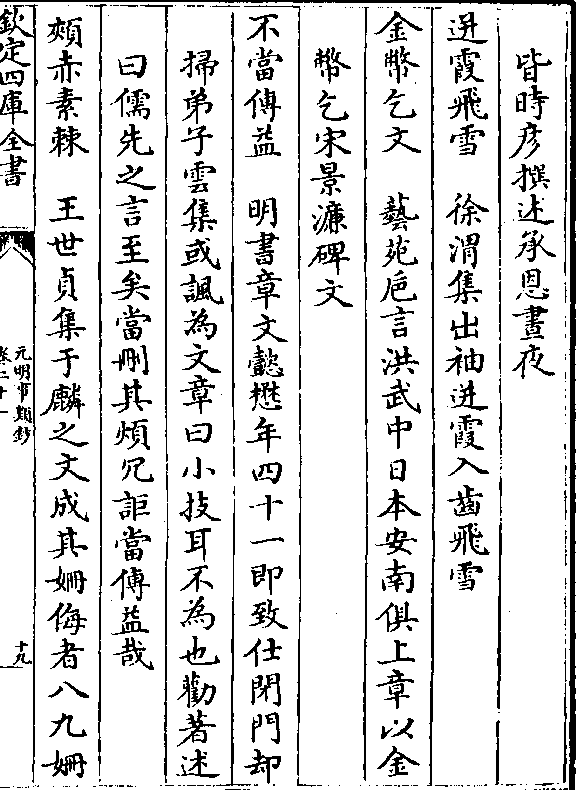 皆時彥撰述承恩晝夜
迸霞飛雪　徐渭集出袖迸霞入齒飛雪
金幣乞文　藝苑巵言洪武中日本安南俱上章以金
幣乞宋景濂碑文
不當傅益　明書章文懿懋年四十一即致仕閉門却
掃弟子雲集或諷為文章曰小技耳不為也勸著述
曰儒先之言至矣當刪其煩冗詎當傅益哉
頰赤素棘　王世貞集于麟之文成其姍侮者八九姍
欽定四庫全書
元明事類鈔
卷二十一
十九